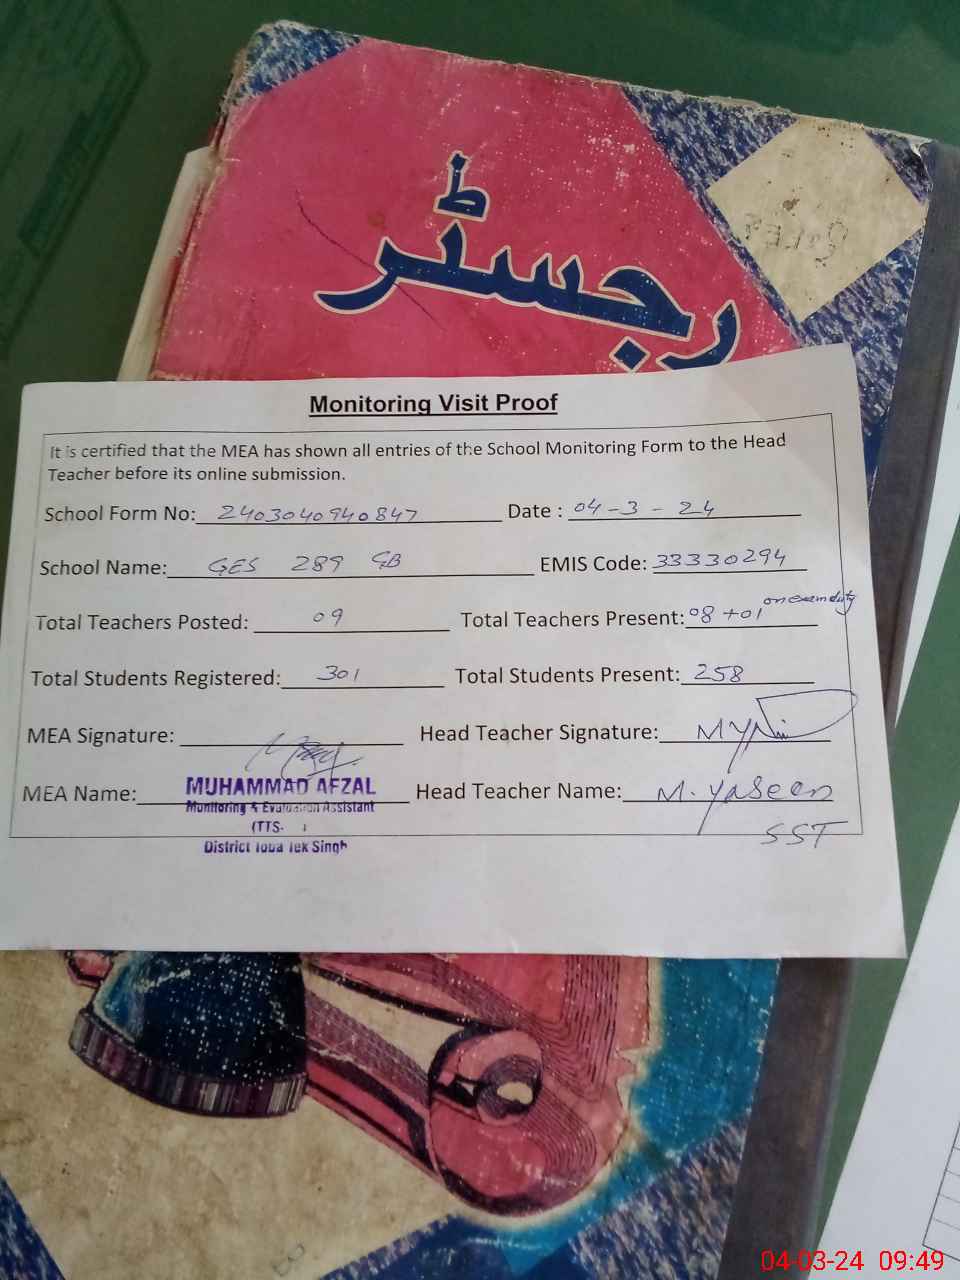 رجسٹر
Monitoring Visit Proof
It is certified that the MEA has shown all entries of the School Monitoring Form to the Head
Teacher before its online submission.
School Form No: 2403040940847 Date : 04-3-24
School Name: GES 289 GB EMIS Code: 33330294
Total Teachers Posted: 09 Total Teachers Present: 08+01 on exam duty
Total Students Registered: 301 Total Students Present: 258
MEA Signature: Head Teacher Signature:
MEA Name: MUHAMMAD AFZAL Head Teacher Name: M. Yaseen
Monitoring & Evaluation Assistant SST
(TTS-
District Toba Tek Singh
04-03-24 09:49